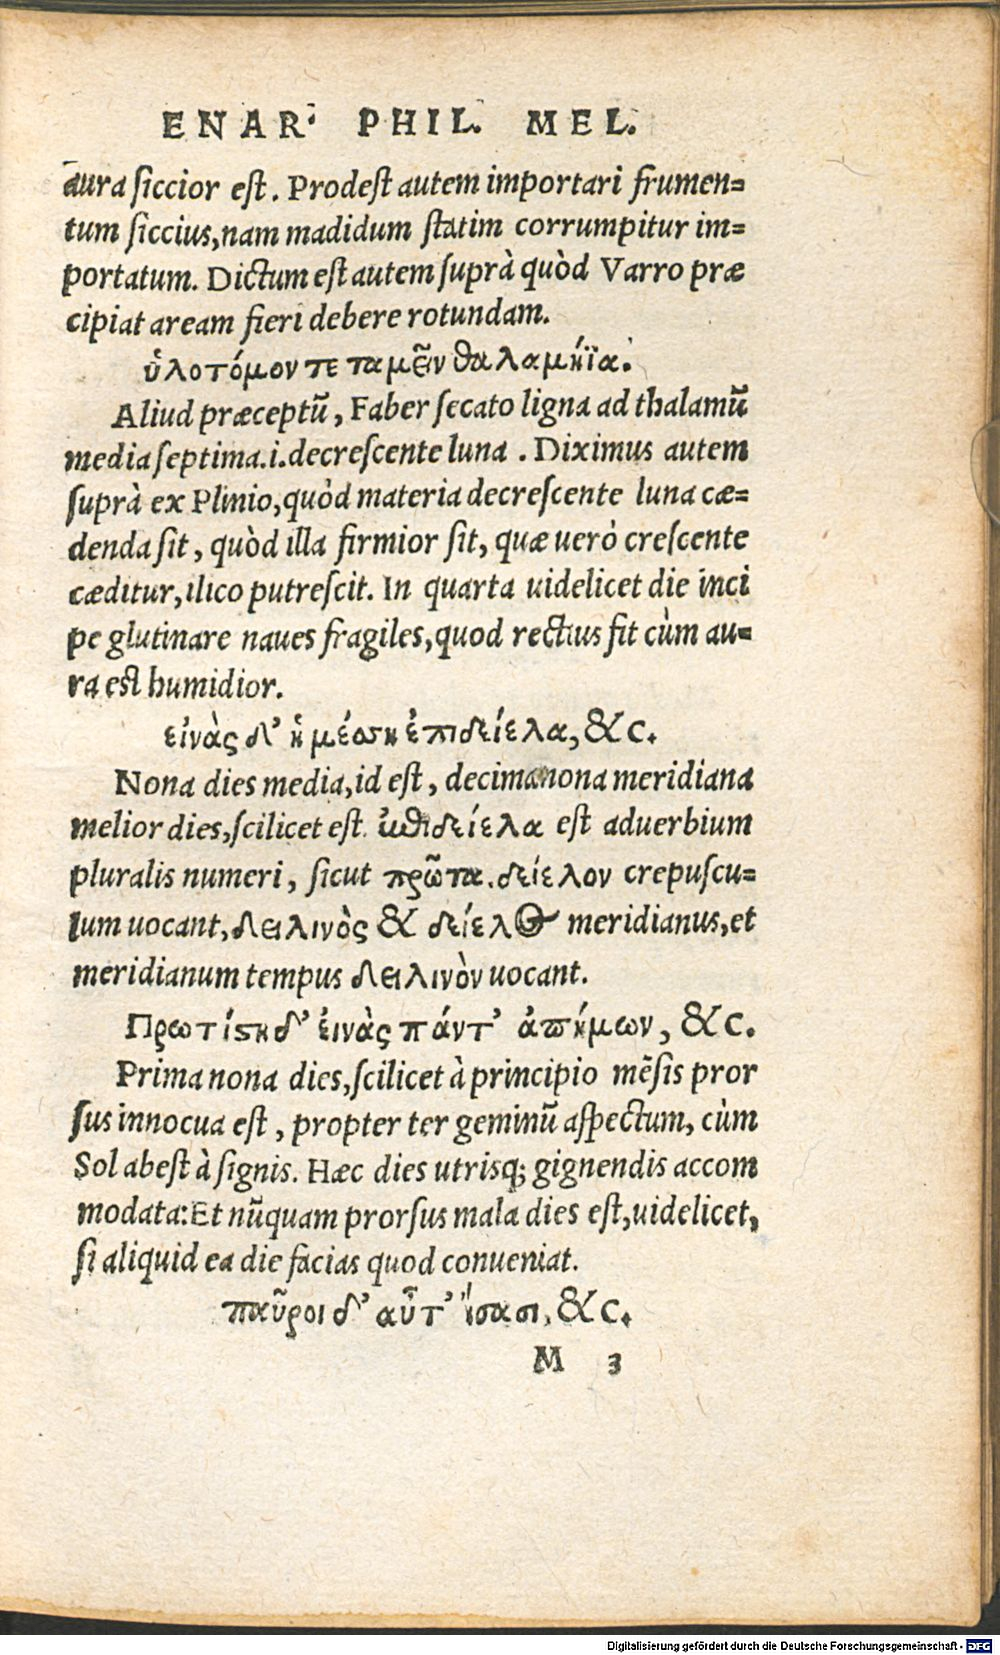 ENAR. PHIL. MEL.
aura ſiccior eſt. Prodeſt autem importari frumen=
tum ſiccius, nam madidum ſtatim corrumpitur im=
portatum. Dictum eſt autem ſuprà quòd Varro præ
cipiat aream fieri debere rotundam.
ὑλοτόμον τε ταμεῖν θαλαμήϊα.
Aliud præceptũ, Faber ſecato ligna ad thalamũ
media ſeptima.i.decreſcente luna. Diximus autem
ſuprà ex Plinio, quòd materia decreſcente luna cæ=
denda ſit, quòd illa firmior ſit, quæ uerò creſcente
cæditur, ilico putreſcit. In quarta uidelicet die inci
pe glutinare naues fragiles, quod rectius fit cùm au=
ra est humidior.
εἰνὰς δ’ ἡ μέσση ἐπιδείελα, &c.
Nona dies media, id eſt, decimanona meridiana
melior dies, ſcilicet eſt. ἐπιδείελα eſt aduerbium
pluralis numeri, ſicut πρῶτα. δείελον crepuſcu=
lum uocant, δειλινὸς & δείελος meridianus, et
meridianum tempus δειλινὸν uocant.
Πρωτίστη δ’ εἰνὰς πάντ’ ἀπήμων, &c.
Prima nona dies, ſcilicet à principio mẽſis pror
ſus innocua eſt, propter ter geminũ aſpectum, cùm
Sol abeſt à ſignis. Hæc dies utrisq; gignendis accom
modata: Et nũquam prorſus mala dies eſt, uidelicet,
ſi aliquid ea die facias quod conueniat.
παῦροι δ’ αὖτ’ ἴσασι, &c.
M 3
Digitalisierung gefördert durch die Deutsche Forschungsgemeinschaft - DFG